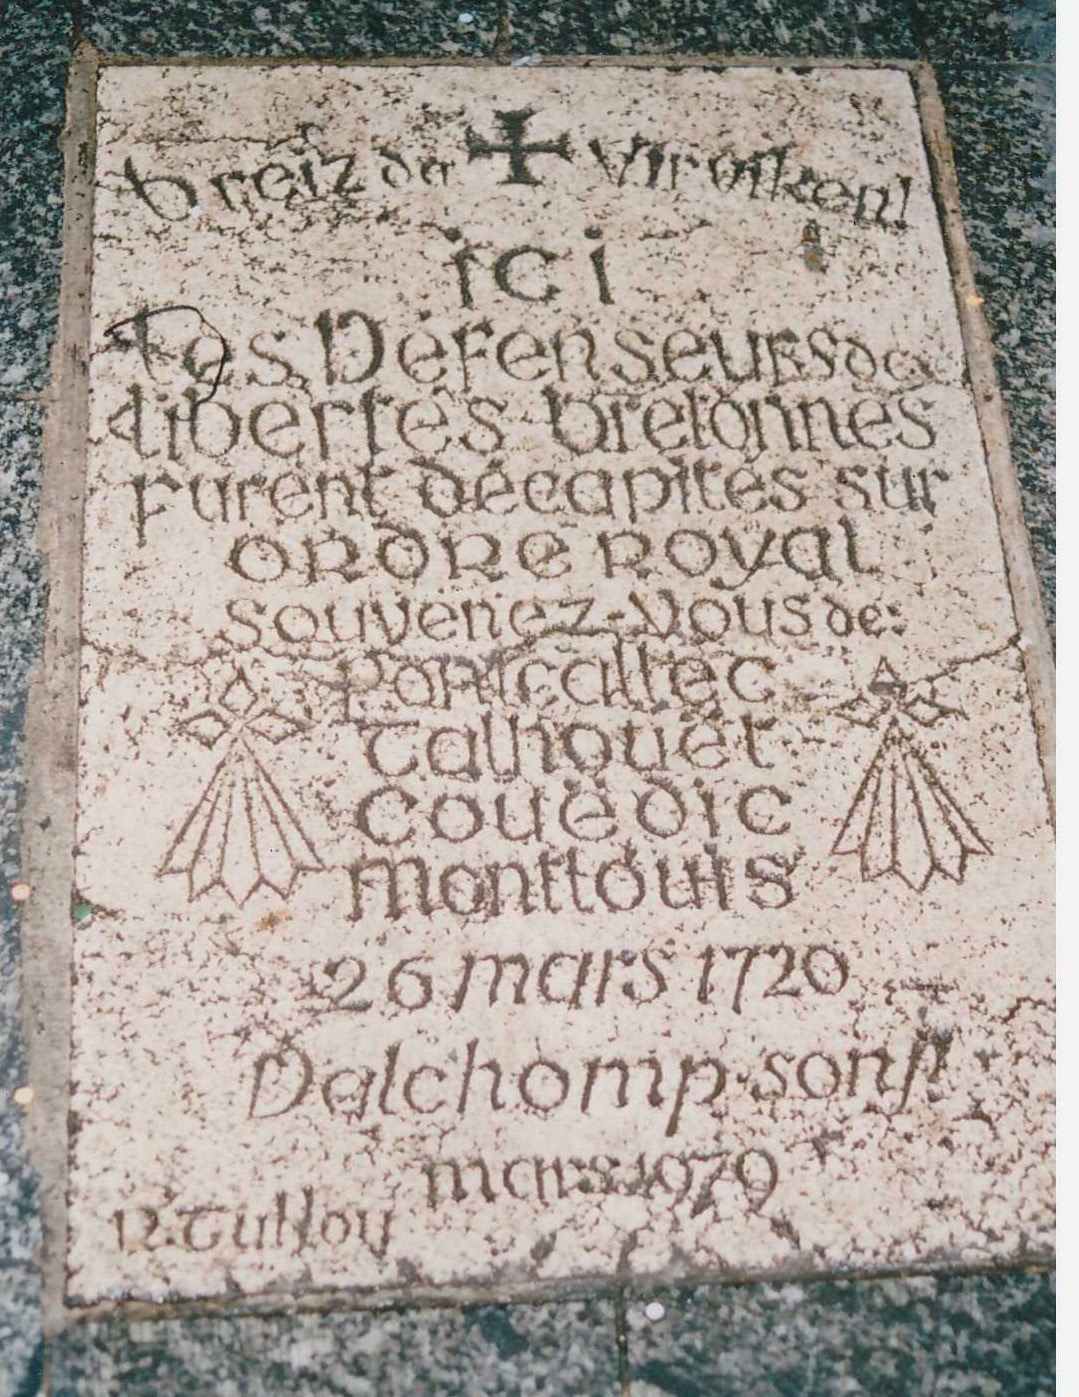 breiz da virviken!
ici
les Défenseurs des
libertés bretonnes
furent décapités sur
ordre royal
souvenez-vous de:
Pontcallec
Talhouët
Couëdic
Montlouis
26 mars 1720
Dalchomp sonj!
mars 1979